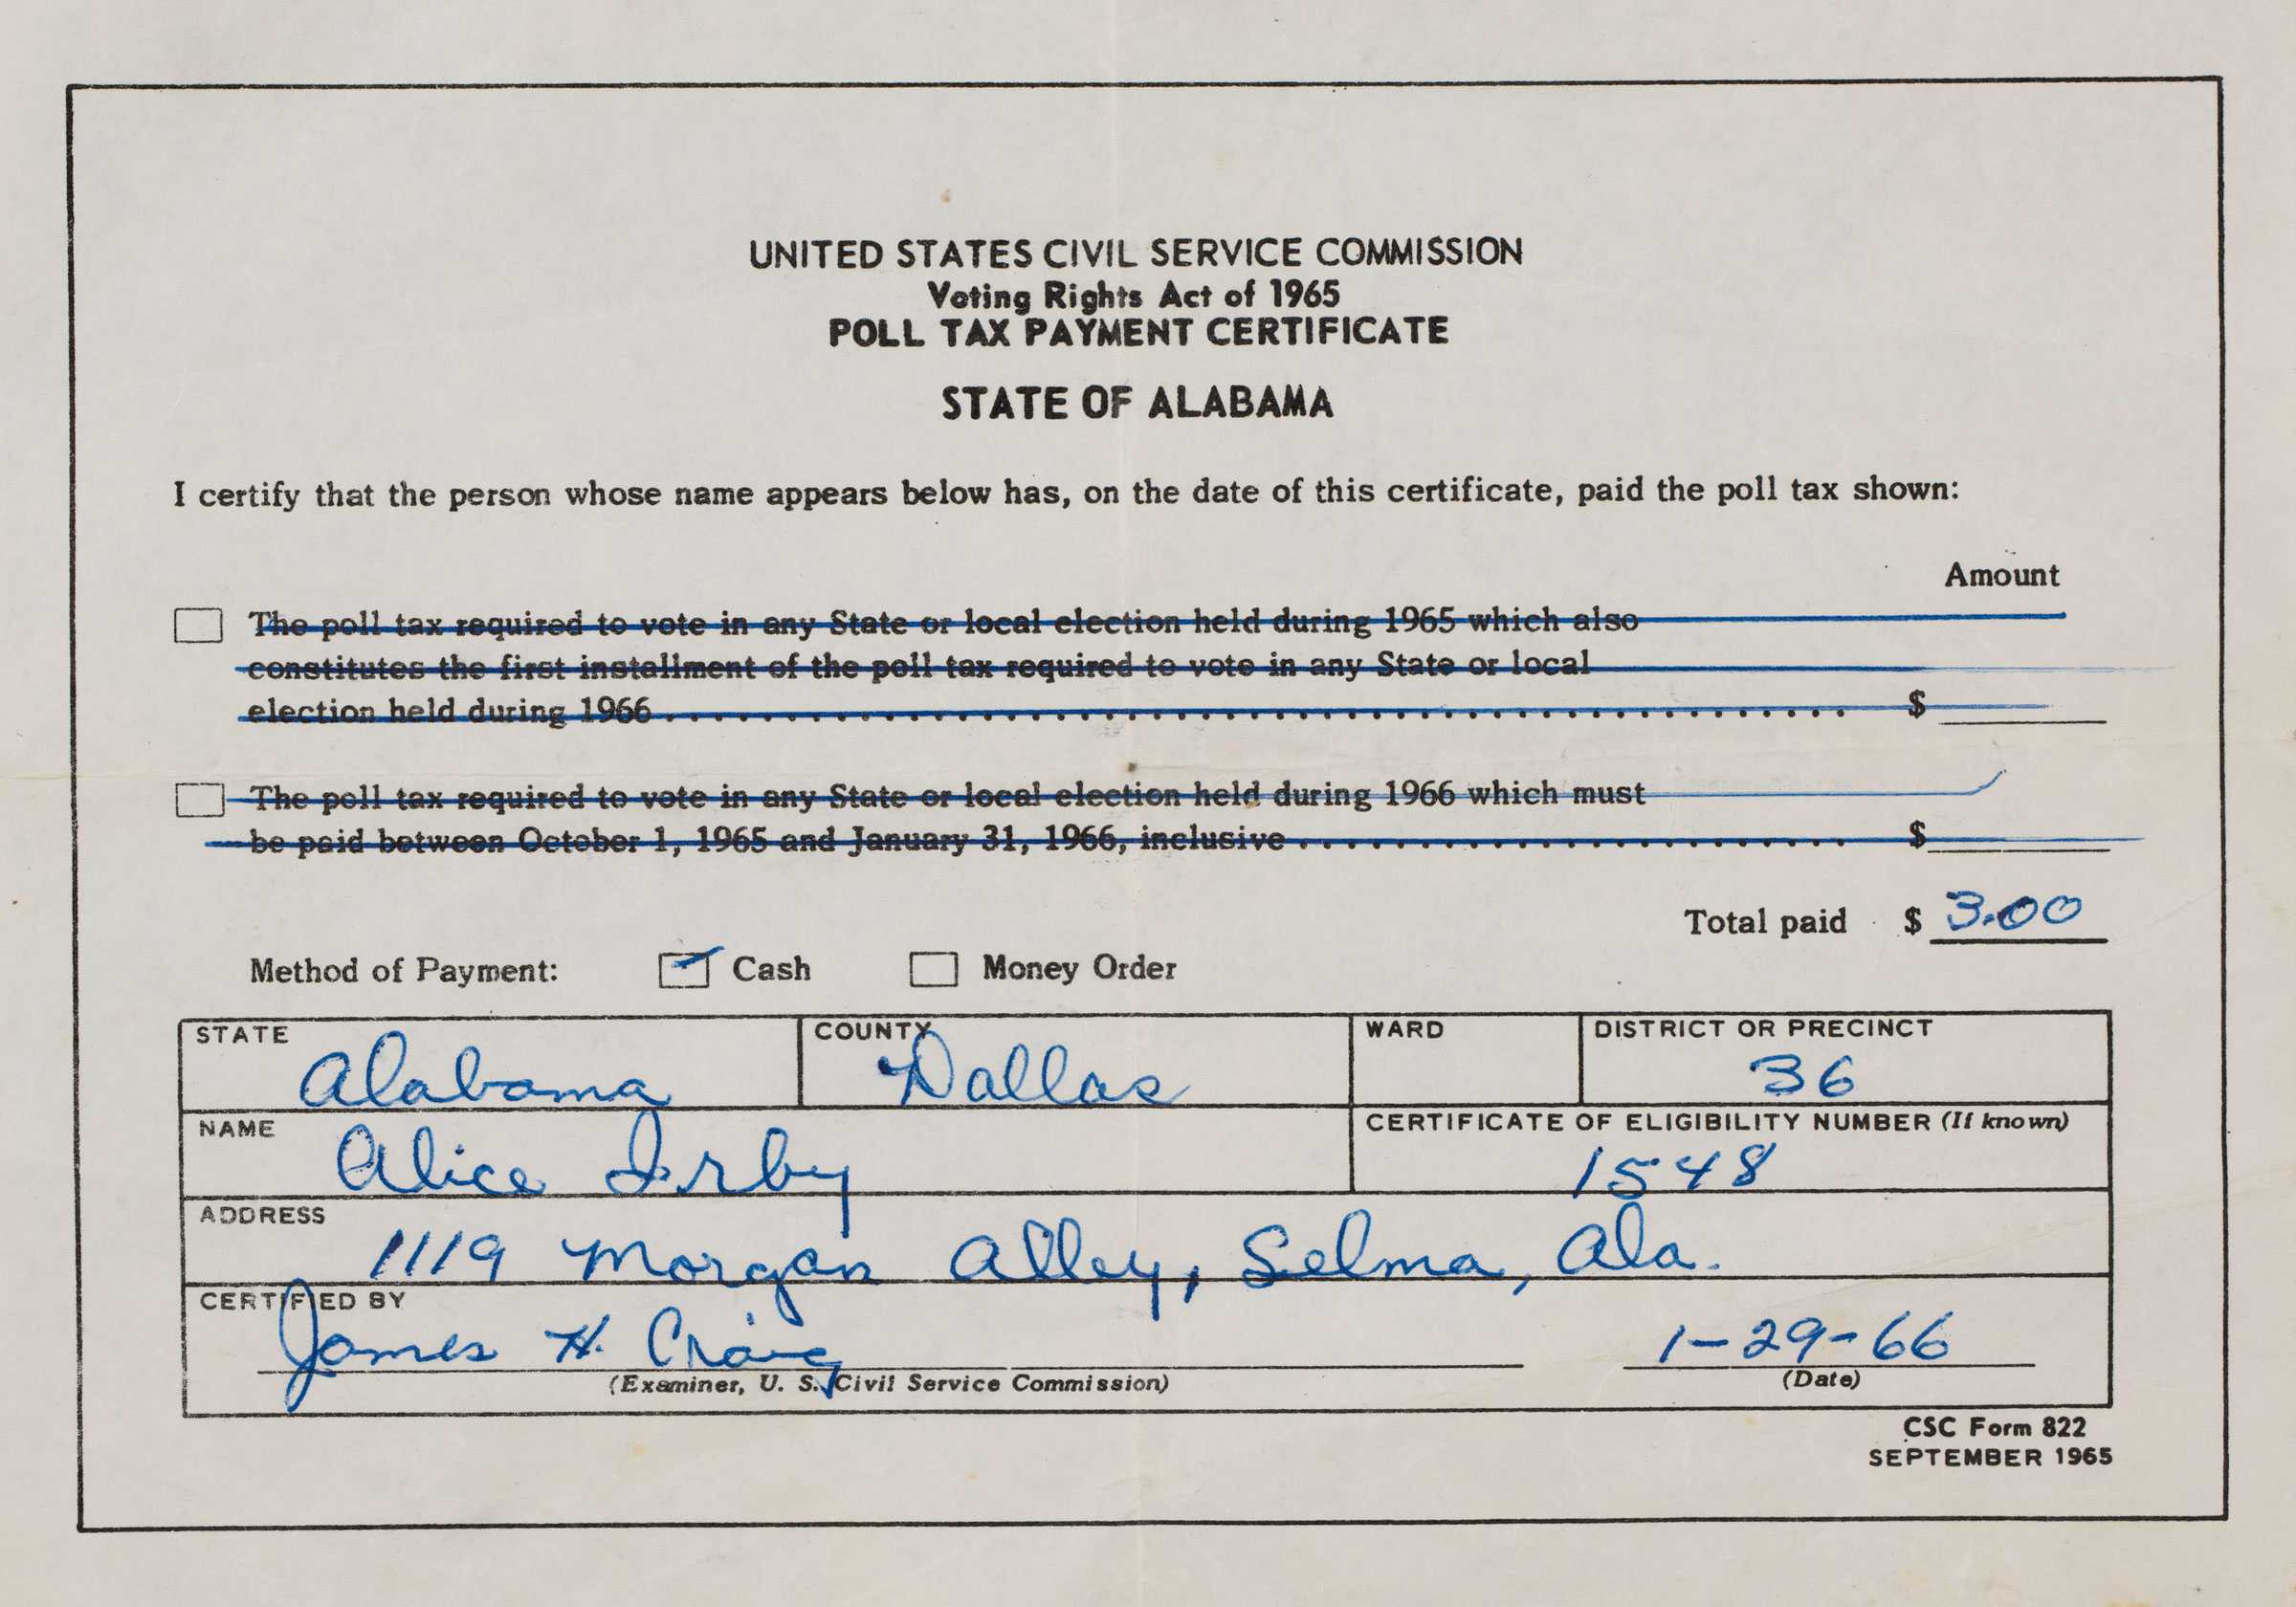 UNITED STATES CIVIL SERVICE COMMISSION
Voting Rights Act of 1965
POLL TAX PAYMENT CERTIFICATE
STATE OF ALABAMA
I certify that the person whose name appears below has, on the date of this certificate, paid the poll tax shown:
Amount
The poll tax required to vote in any State or local election held during 1965 which also
constitutes the first installment of the poll tax required to vote in any State or local
election held during 1966 . . . . . . . . . . . . . . . . . . . . . . . . . . . . . . . . . . . . . . . . $
The poll tax required to vote in any State or local election held during 1966 which must
be paid between October 1, 1965 and January 31, 1966, inclusive . . . . . . . . . . . . . . . . . . . $
Total paid $ 3.00
Method of Payment: Cash Money Order
STATE COUNTY WARD DISTRICT OR PRECINCT
Alabama Dallas 36
NAME CERTIFICATE OF ELIGIBILITY NUMBER (If known)
Alice Irby 1548
ADDRESS
1119 Morgan Alley, Selma, Ala.
CERTIFIED BY
James H. Craig 1-29-66
(Examiner, U. S. Civil Service Commission) (Date)
CSC Form 822
SEPTEMBER 1965